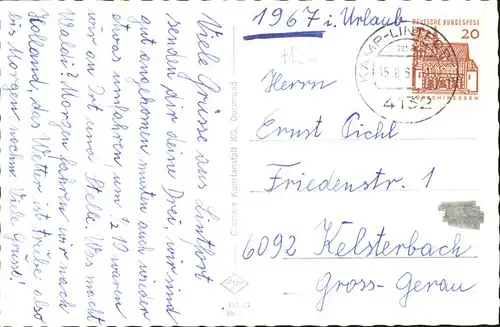 1967 i. Urlaub
DEUTSCHE BUNDESPOST
20
KAMP-LINTFORT
4132
Viele Grüsse aus Lintfort
senden dir deine Drei, wir sind
gut angekommen mussten auch wieder
etwas umfahren, um ½ 10 waren
wir an Ort und Stelle. Was macht
Waldi? Morgen fahren wir nach
Holland, das Wetter ist trübe also
bis Morgen nochm. Viele Grüsse!
Cramers Kunstanstalt KG, Dortmund
Herrn
Ernst Pichl
Friedenstr. 1
6092 Kelsterbach
Gross-Gerau